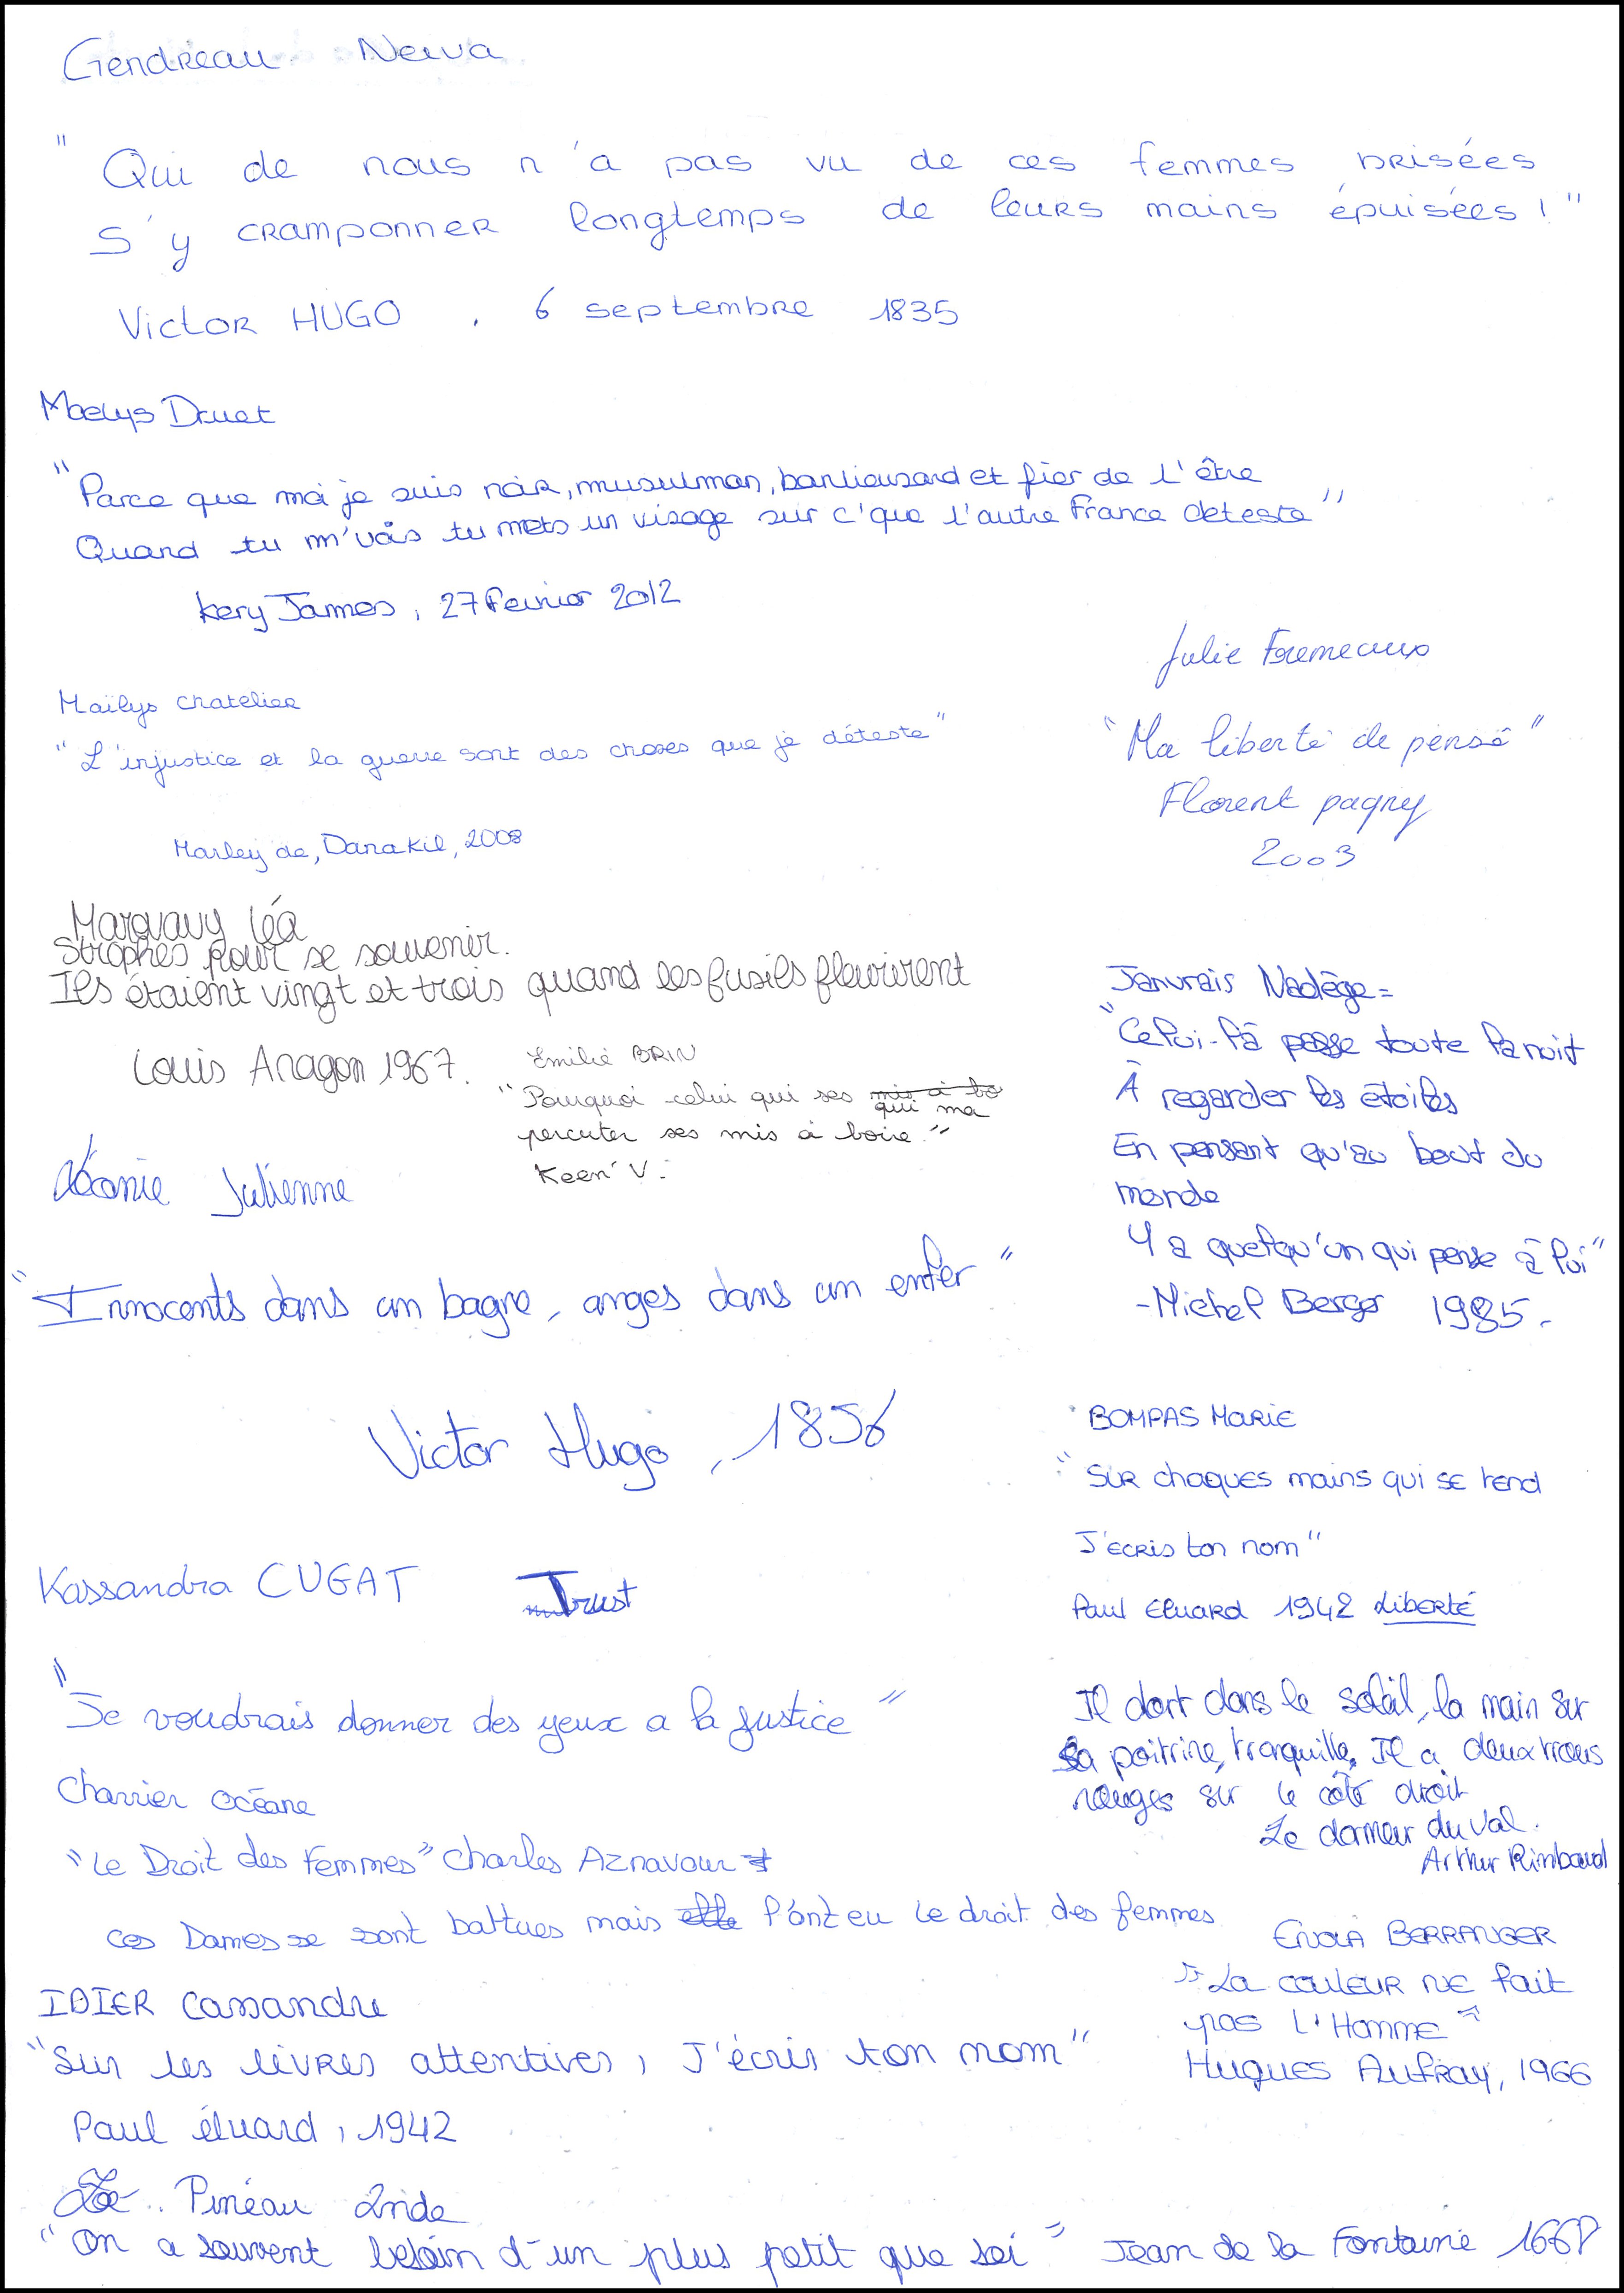 Gendreau Neiva
" Qui de nous n'a pas vu de ces femmes brisées
s'y cramponner longtemps de leurs mains épuisées ! "
Victor HUGO , 6 septembre 1835
Maelys Druet
" Parce que moi je suis noir, musulman, banlieusard et fier de l'être
Quand tu m'vois tu mets un visage sur c'que l'autre France deteste "
Kery James, 27 Fevrier 2012
Maïlys Chatelier
" L'injustice et la guerre sont des choses que je déteste "
Marley de, Danakil, 2008
Julie Fremeaux
" Ma liberté de pensé "
Florent pagny
2003
Marquavy Léa
Strophes pour se souvenir.
Ils étaient vingt et trois quand les fusils fleurirent
Louis Aragon 1967.
Emilie BRIN
" Pourquoi celui qui ses mis à bo
qui ma
percuter ses mis à boire. "
Keen' V.
Janvrais Nadège =
" Celui-là passe toute la nuit
À regarder les étoiles
En pensant qu'au bout du
monde
Y a quelqu'un qui pense à lui "
- Michel Berger 1985.
Léonie Julienne
" Innocents dans un bagne, anges dans un enfer "
Victor Hugo, 1856
BOMPAS Marie
" Sur chaques mains qui se tend
J'écris ton nom "
Paul Eluard 1942 Liberté
Kassandra CUGAT Trust
" Je voudrais donner des yeux a la justice "
Il dort dans le soleil, la main sur
sa poitrine, tranquille, Il a deux trous
rouges sur le côté droit
Le dormeur du Val.
Arthur Rimbaud
Charrier Océane
" Le Droit des Femmes " Charles Aznavour
ces Dames se sont battues mais elle l'ont eu le droit des femmes
Enola BERRANGER
" La couleur ne fait
pas l'Homme "
Hugues Aufray, 1966
IDIER Cassandre
" Sur les lèvres attentives, J'écris ton nom "
Paul éluard, 1942
Zoe Pineau 2nde
" On a souvent besoin d'un plus petit que soi " Jean de la Fontaine 1668